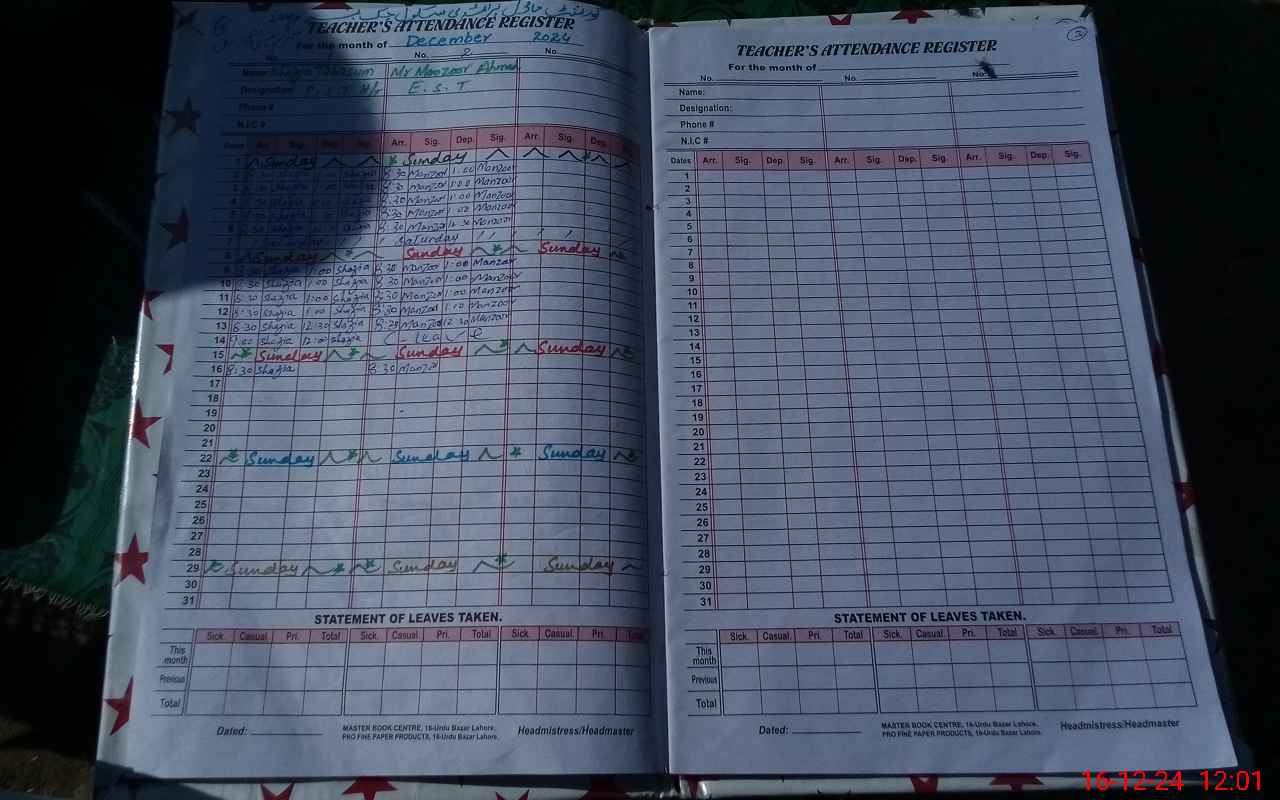 گورنمنٹ ماڈل پرائمری سکول
TEACHER'S ATTENDANCE REGISTER
For the month of December 2024
No. No. 2 No.
Name Shazia Tabassum Mr Manzoor Ahmad
Designation P.S.T E.S.T
Phone #
N.I.C #
Dates Arr. Sig. Dep. Sig. Arr. Sig. Dep. Sig. Arr. Sig. Dep.
1 Sunday Sunday
2 8:30 Shazia 1:00 Shazia 8:30 Manzoor 1:00 Manzoor
3 8:30 Shazia 1:00 Shazia 8:30 Manzoor 1:00 Manzoor
4 8:30 Shazia 1:00 Shazia 8:30 Manzoor 1:00 Manzoor
5 8:30 Shazia 1:00 Shazia 8:30 Manzoor 1:00 Manzoor
6 8:30 Shazia Shazia 8:30 Manzoor 12:30 Manzoor
7 Saturday Saturday
8 Sunday Sunday Sunday
9 8:30 Shazia 1:00 Shazia 8:30 Manzoor 1:00 Manzoor
10 8:30 Shazia 1:00 Shazia 8:30 Manzoor 1:00 Manzoor
11 8:30 Shazia 1:00 Shazia 8:30 Manzoor 1:00 Manzoor
12 8:30 Shazia 1:00 Shazia 8:30 Manzoor 1:00 Manzoor
13 8:30 Shazia 12:30 Shazia 8:28 Manzoor 12:30 Manzoor
14 9:00 Shazia 12:00 Shazia C - leave
15 Sunday Sunday Sunday
16 8:30 Shazia 8:30 Manzoor
17
18
19
20
21
22 Sunday Sunday Sunday
23
24
25
26
27
28
29 Sunday Sunday Sunday
30
31
STATEMENT OF LEAVES TAKEN.
Sick. Casual. Pri. Total Sick. Casual. Pri. Total Sick. Casual. Pri. Total
This month
Previous
Total
Dated: MASTER BOOK CENTRE, 16-Urdu Bazar Lahore. Headmistress/Headmaster
PRO FINE PAPER PRODUCTS, 16-Urdu Bazar Lahore.
3
TEACHER'S ATTENDANCE REGISTER
For the month of
No. No. No.
Name:
Designation:
Phone #
N.I.C #
Dates Arr. Sig. Dep. Sig. Arr. Sig. Dep. Sig. Arr. Sig. Dep. Sig.
1
2
3
4
5
6
7
8
9
10
11
12
13
14
15
16
17
18
19
20
21
22
23
24
25
26
27
28
29
30
31
STATEMENT OF LEAVES TAKEN.
Sick. Casual. Pri. Total Sick. Casual. Pri. Total Sick. Casual. Pri. Total
This month
Previous
Total
Dated: MASTER BOOK CENTRE, 16-Urdu Bazar Lahore. Headmistress/Headmaster
PRO FINE PAPER PRODUCTS, 16-Urdu Bazar Lahore.
16-12-24 12:01